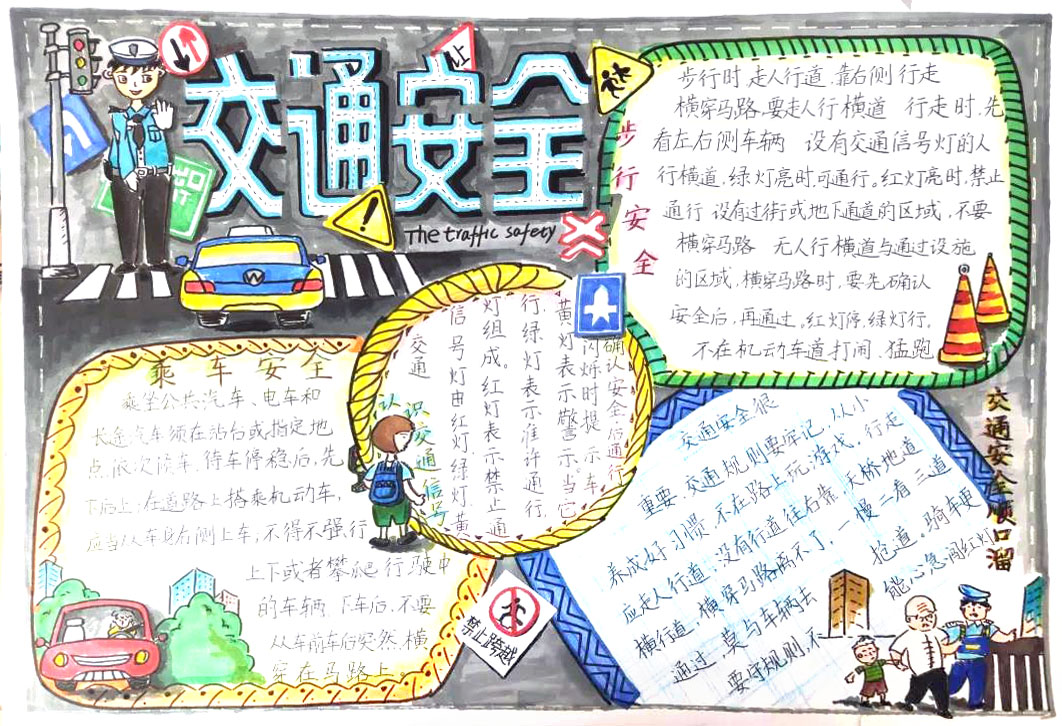 交通安全
止
The traffic safety
步行安全
步行时走人行道.靠右侧行走
横穿马路.要走人行横道 行走时.先
看左右侧车辆 没有交通信号灯的人
行横道.绿灯亮时.可通行。红灯亮时.禁止
通行 设有过街或地下通道的区域,不要
横穿马路 无人行横道与通过设施
的区域,横穿马路时.要先确认
安全后,再通过.红灯停.绿灯行.
不在机动车道打闹、猛跑
认识交通信号
交通
信号灯由红灯.绿灯.黄
灯组成。红灯表示禁止通
行,绿灯表示准许通行.
黄灯表示警示.当它
闪烁时提示车
确认安全后通行
乘车安全
乘坐公共汽车、电车和
长途汽车须在站台或指定地
点.依次候车.待车停稳后,先
下后上;在道路上搭乘机动车,
应当从车身右侧上车;不得不强行
上下或者攀爬行驶中
的车辆.下车后.不要
从车前车后突然横
穿在马路上.
禁止跨越
交通安全顺口溜
交通安全很
重要.交通规则要牢记,从小
养成好习惯.不在路上玩游戏.行走
应走人行道,没有行道往右靠.天桥地道
横行道,横穿马路离不了.一慢二看三道
通过,莫与车辆去抢道。骑车更
要守规则,不能心急闯红灯